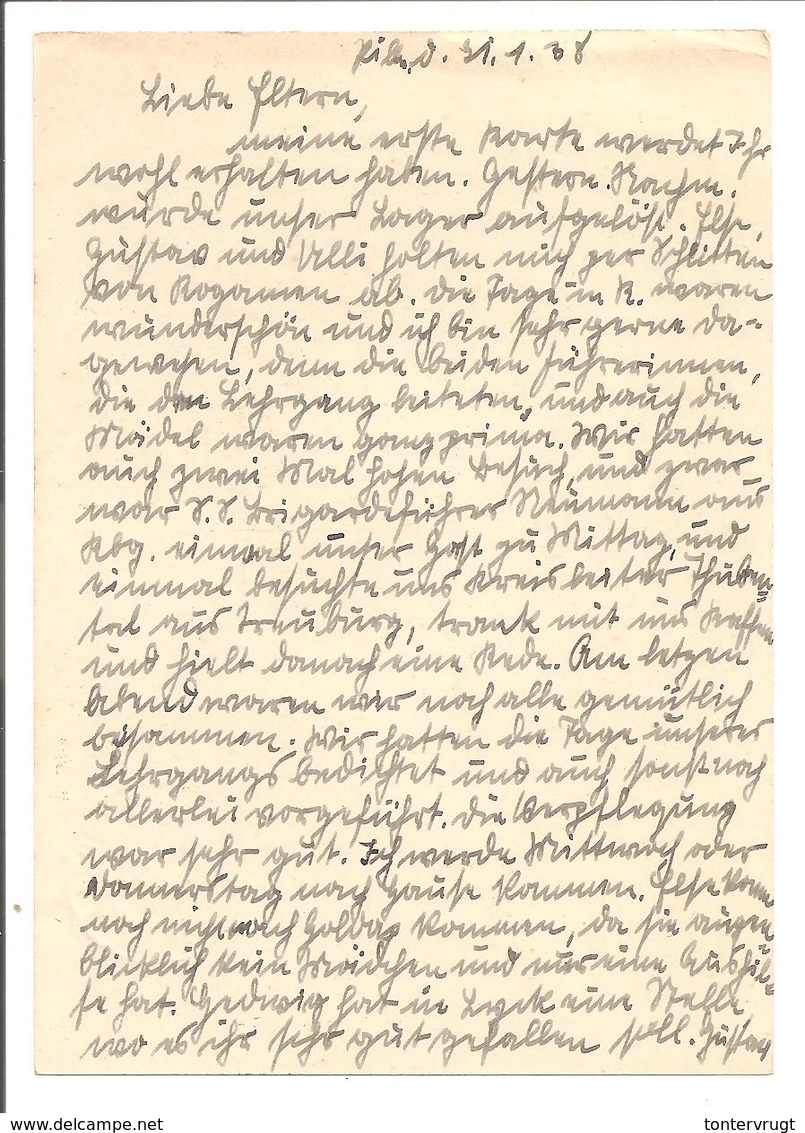 d. 31.1.38
Liebe Eltern,
meine erste Karte werdet Ihr
wohl erhalten haben. Gestern Nachm.
wurde unser Lager aufgelöst. Else,
Gustav und Ulli holten mich per Schlitten
von Rogamen ab. Die Tage in R. waren
wunderschön und ich bin sehr gerne da-
gewesen, denn die beiden Führerinnen,
die den Lehrgang leiteten, und auch die
Mädel waren ganz prima. Wir hatten
auch zwei Mal hohen Besuch, und zwar
war S.S. Brigardeführer Neumann aus
Kbg. einmal unser Gast zu Mittag, und
einmal besuchte uns Kreisleiter Thuben-
tal aus Treuburg, trank mit uns Kaffee
und hielt danach eine Rede. Am letzen
Abend waren wir noch alle gemütlich
beisammen. Wir hatten die Tage unseres
Lehrgangs bedichtet und auch sonst noch
allerlei vorgeführt. Die Verpflegung
war sehr gut. Ich werde Mittwoch oder
Donnerstag nach Hause kommen. Else kann
noch nicht nach Goldap kommen, da sie augen-
blicklich kein Mädchen und nur eine Aushil-
fe hat. Hedwig hat in Lyck eine Stelle
wo es ihr sehr gut gefallen soll. Gustav
tontervrugt